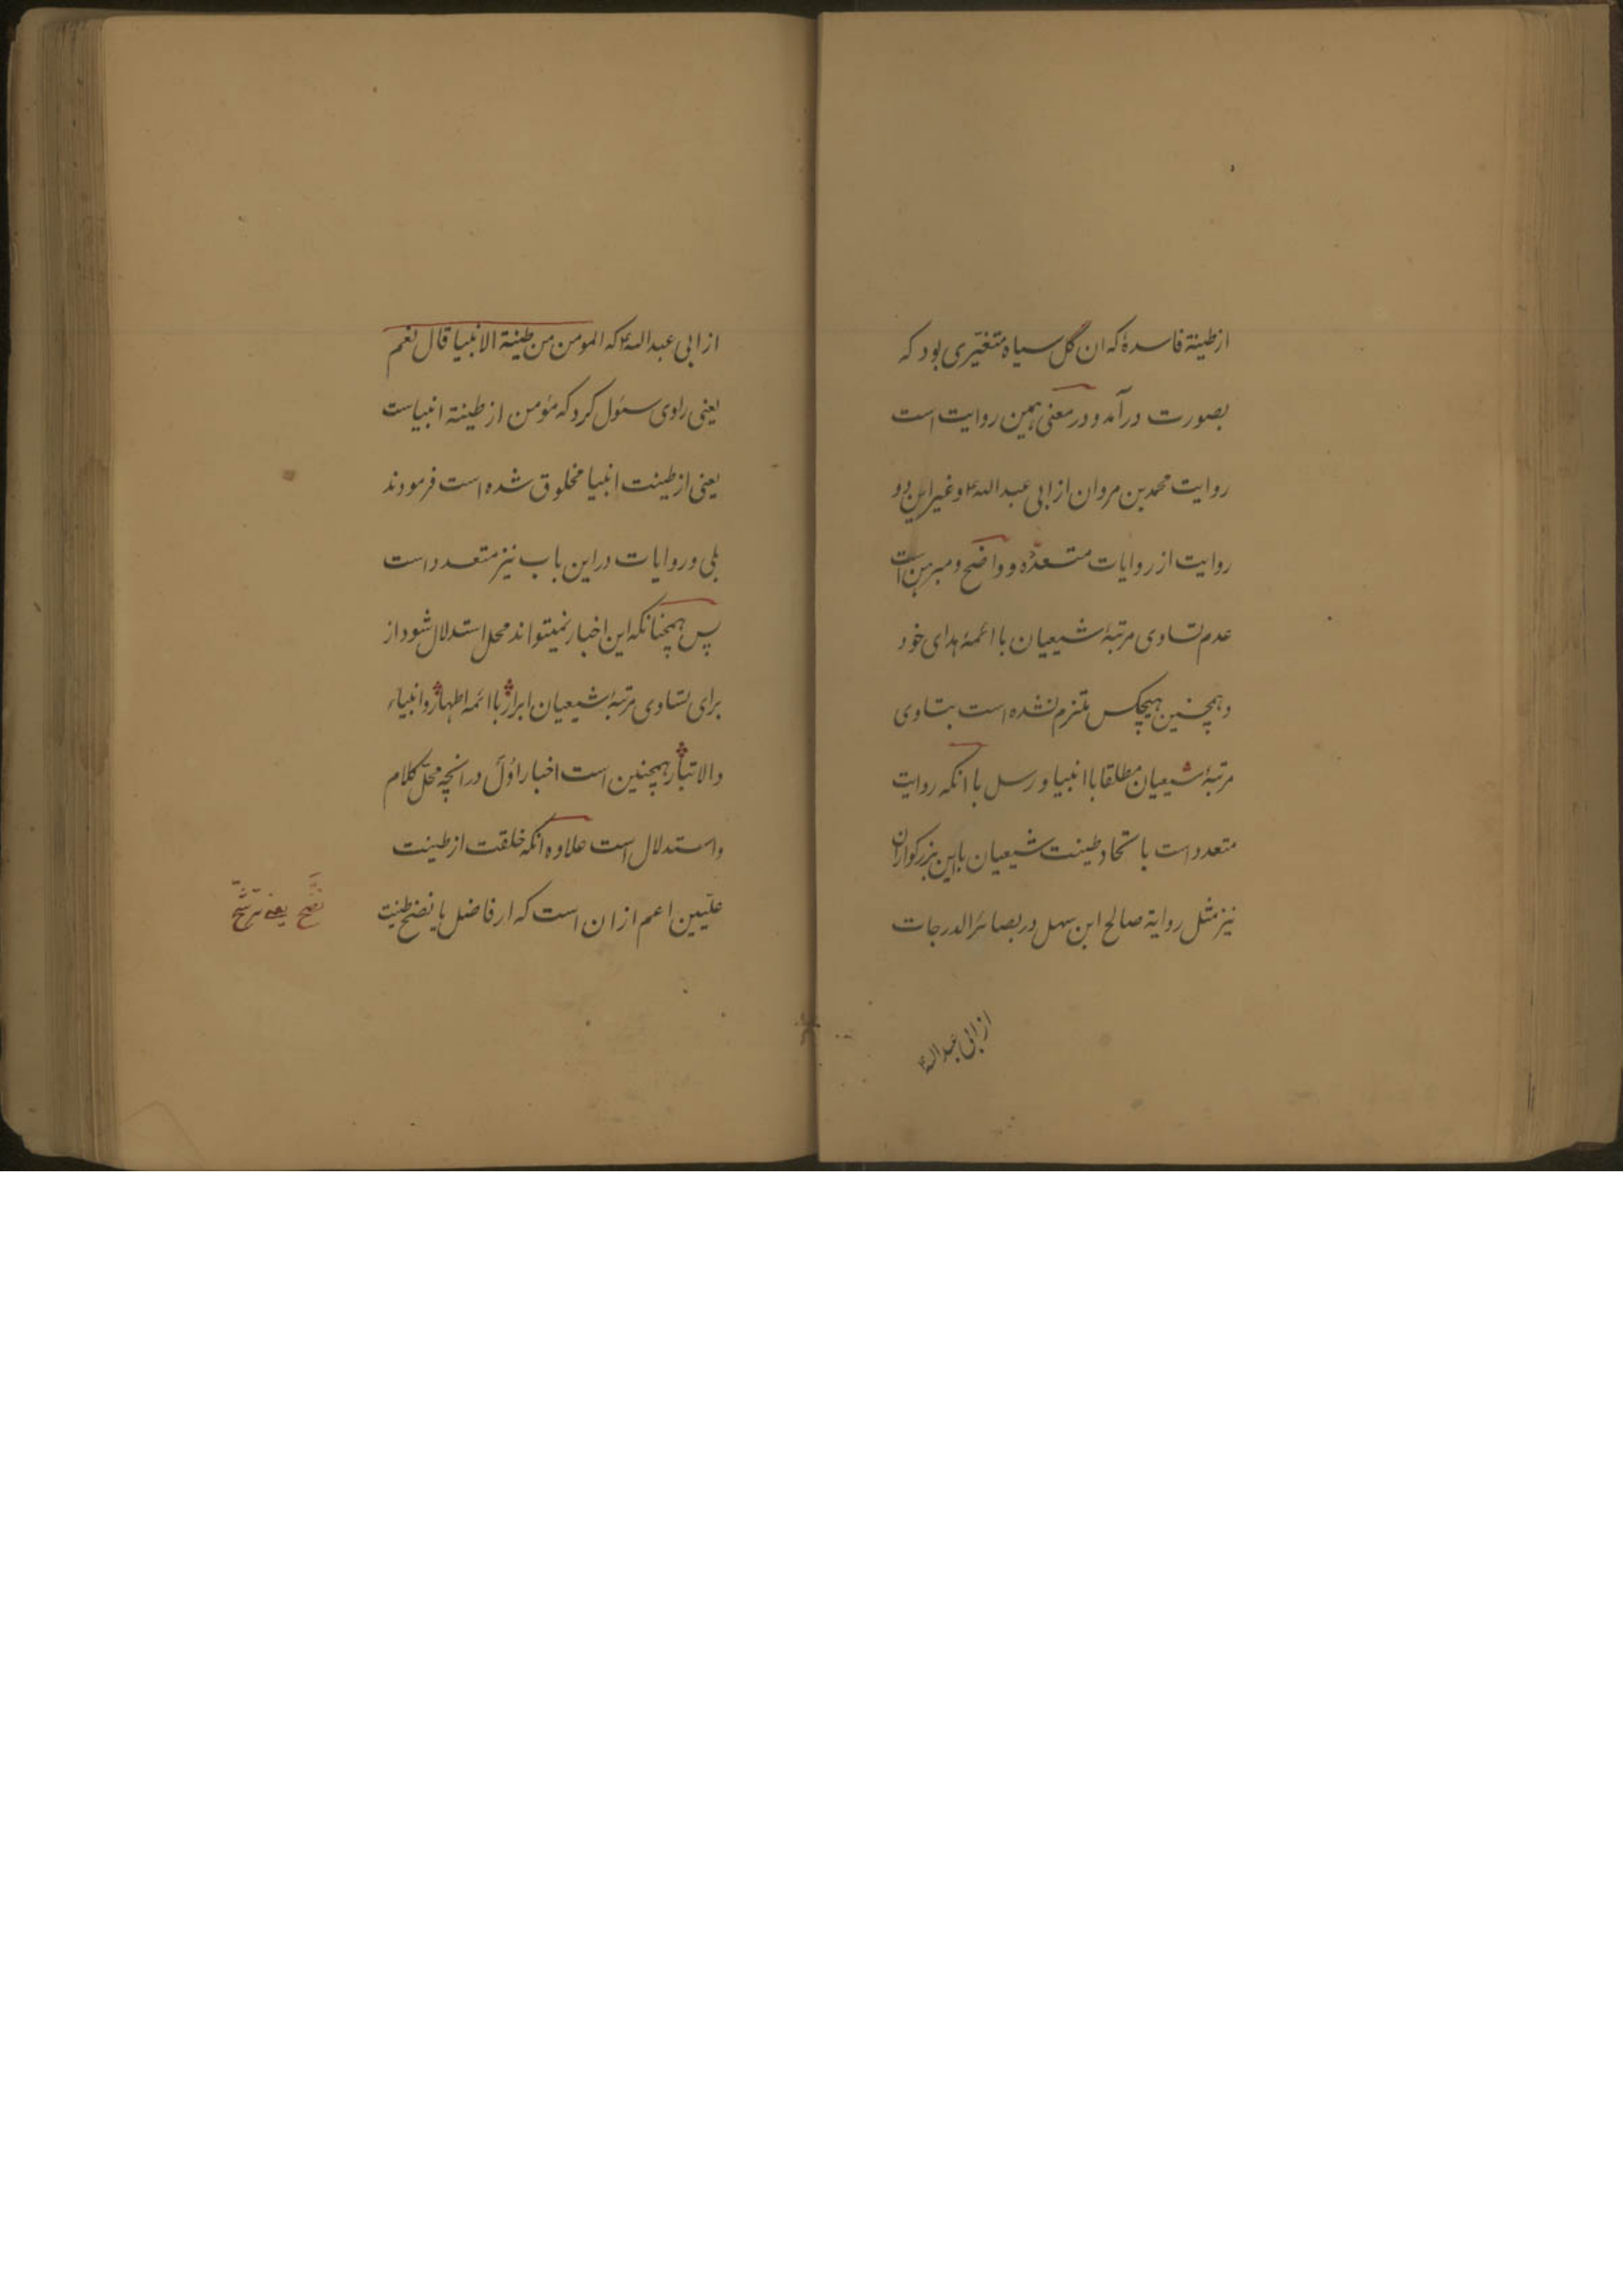 از طینة فاسدهٔ که ان گل سیاه متغیّری بود که
بصورت درآمد و در معنی همین روایت است
روایت محمد بن مروان از ابی عبد الله ع و غیر این دو
روایت از روایات متعدده و واضح و مبرهن است
عدم تساوی مرتبهٔ شیعیان با ائمهٔ هدای خود
و همچنین هیچکس ملتزم نشده است بتساوی
مرتبهٔ شیعیان مطلقا با انبیا و رسل با انکه روایت
متعدد است باتحاد طینت شیعیان باین بزرکواران
نیز مثل روایة صالح ابن سهل در بصائر الدرجات
از ابی عبد الله ع
از ابی عبد الله ع که المومن من طینة الانبیا قال نعم
یعنی راوی سئول کرد که مؤمن از طینة انبیاست
یعنی از طینت انبیا مخلوق شده است فرمودند
بلی و روایات در این باب نیز متعدد است
پس همچنانکه این اخبار نمیتواند محل استدلال شود از
برای تساوی مرتبهٔ شیعیان ابرار با ائمه اطهار و انبیاء
والاتبار همچنین است اخبار اوّل در انچه محلّ کلام
و استدلال است علاوه انکه خلقت از طینت
علیین اعم از ان است که از فاضل یا نضح طینت
نضح یعنی ترشّح